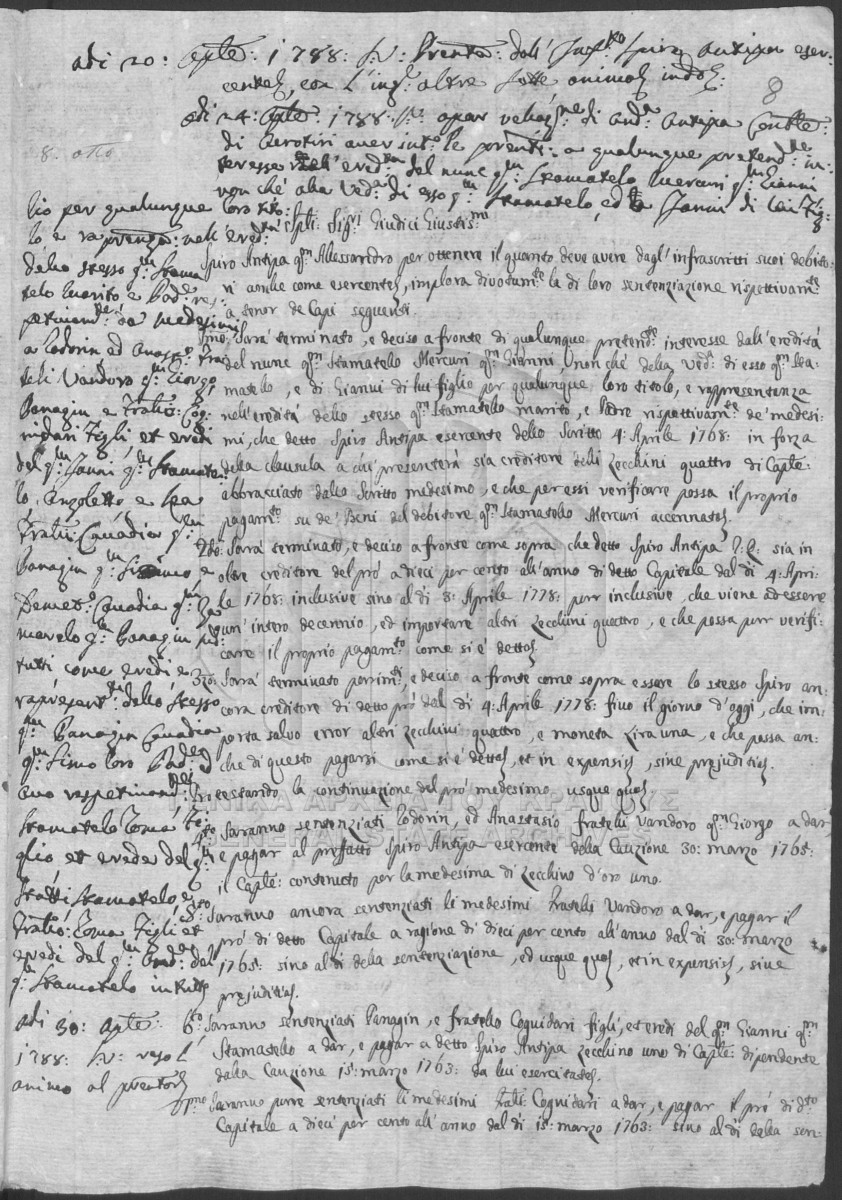 adi 20: Aple: 1788: S:V: Prenta: dall' Spiro Antipa eser:
cente, con l' altre sotte animo
8
adi 24: Aple: 1788: S:V: apar di And: Antipa
di Aerotiri aver le prnti: a qualunque pretend:te in:
teresse dall' ered:tà del nunc q:m Stamatelo Mercuri q:m Gianni
non ché alla Ved:a di esso q:m Stamatelo, ed a Janni di lui Fig:
8. otto
lio per qualunque loro tito:
lo, e rapprenza: nell' ered:tà
dello stesso q:m Stama
telo Marito e Pad:e res
petivam:te de medesimi
a Lodorin ed Anast:o Fra
telli Vandoro q:m Giorgo,
Panagin e Fratlo: Cog:
nidari Figli et eredi
del q:m Janni q:m Stamate:
lo. Angoletto e
Fratlli: Canadia q:m
Panagin q:m Sismo e
Demet:o Canadia q:m
marvelo q:m Panagin
tutti come eredi e
rapresent:ti dello stesso
q:m Panagin Canadia
q:m Sismo loro Pad:e ed
Avo respetivam:te
Stamatelo Tomà Fi:
glio et erede del q:m
Stamatelo e
Fratlo: Toma Figli et
eredi del q:m del
q:m Stamatelo
adi 30: Aple:
1788: S:V:
animo al
Splti: Sig:ri Giudici Giustis:mi
Spiro Antipa q:m Allessandro per ottenere il quanto deve avere dagl' infrascritti suoi debito:
ri anche come esercente, implora divotam:te la di loro sentenziazione rispettivam:te
a tenor de Capi seguenti.
P:mo: Sarà terminato, e deciso a fronte di qualunque pretend:te interesse dall' eredità
del nunc q:m Stamatello Mercuri q:m Gianni, non ché della Ved:a di esso q:m Sta:
matelo, e di Gianni di lui figlio per qualunque loro titolo, e rappresentenza
nell' eredità dello stesso q:m Stamatello marito, e Pdre rispettivam:te de' medesi:
mi, che detto Spiro Antipa esercente dello Scritto 4: Aprile 1768: in forza
della clausula a chi presenterà sia creditore delli Zecchini quattro di Caple:
abbracciato dallo Scritto medesimo, e che per essi verificare possa il proprio
pagam:to su de' Beni del debitore q:m Stamatello Mercuri accennato.
2do: Sarà terminato, e deciso a fronte come sopra che detto Spiro Antipa sia in
oltre creditore del prò a dieci per cento all' anno di detto Capitale dal di 4: Apri:
le 1768: inclusive sino al di 8: Aprile 1778: pur inclusive, che viene ad essere
un' intero decennio, ed importare altri Zecchini quattro, e che possa pur verifi:
care il proprio pagam:to come si é detto.
3zo: Sarà terminato parim:ti, e deciso a fronte come sopra essere lo stesso Spiro an:
cora creditore di detto prò dal di 4: Aprile 1778: fino il giorno d'oggi, che im:
porta salvo error altri Zecchini quattro, e moneta Lira una, e che possa an:
che di questo pagarsi come si é detto, et in expensis, sine prejuditio
restando la continuazione del prò medesimo usque quo.
4:to Saranno sentenziati Lodorin, ed Anastasio fratelli Vandoro q:m Giorgo a dar
e pagar al preffatto Spiro Antipa esercente della Cauzione 30: marzo 1765:
il Caple: contenuto per la medesima di Zecchino d'oro uno.
5:to Saranno ancora sentenziati li medesimi Fratelli Vandoro a dar, e pagar il
prò di detto Capitale a ragione di dieci per cento all' anno dal di 30: marzo
1765: sino al di della sentenziazione, ed usque quo, et in expensis, sine
prejuditio.
6:to Saranno sentenziati Panagin, e fratello Cognidari figli, et eredi del q:m Gianni q:m
Stamatello a dar, e pagar a detto Spiro Antipa Zecchino uno di Caple: dipendente
dalla Cauzione 15: marzo 1763: da lui esercitata.
7:mo Saranno purre sentenziati li medesimi Fratlli: Cognidari a dar, e pagar il prò di d:to
Capitale a dieci per cento all' anno dal di 15: marzo 1763: sino al di della sen:
ΓΕΝΙΚΑ ΑΡΧΕΙΑ ΤΟΥ ΚΡΑΤΟΥΣ
GENERAL STATE ARCHIVES